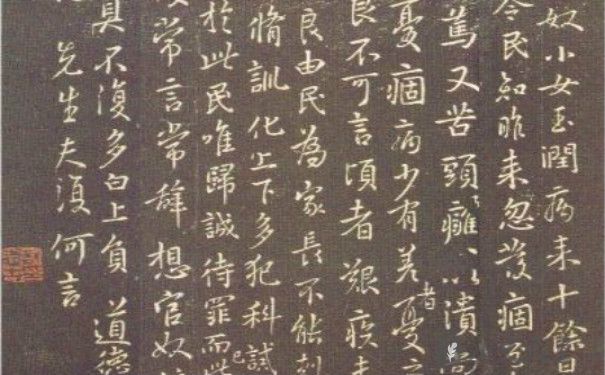 奴小女玉潤病来十餘日
令民知昨来忽發痼至
篤又苦頭癰以潰尚
憂痼病少有差者憂之
良不可言頃者艱疾未
良由民為家長不能剋
脩訓化上下多犯科誡
於此民唯歸誠待罪而已此
常言常辭想官奴
具不復多白上負道德
先生夫復何言